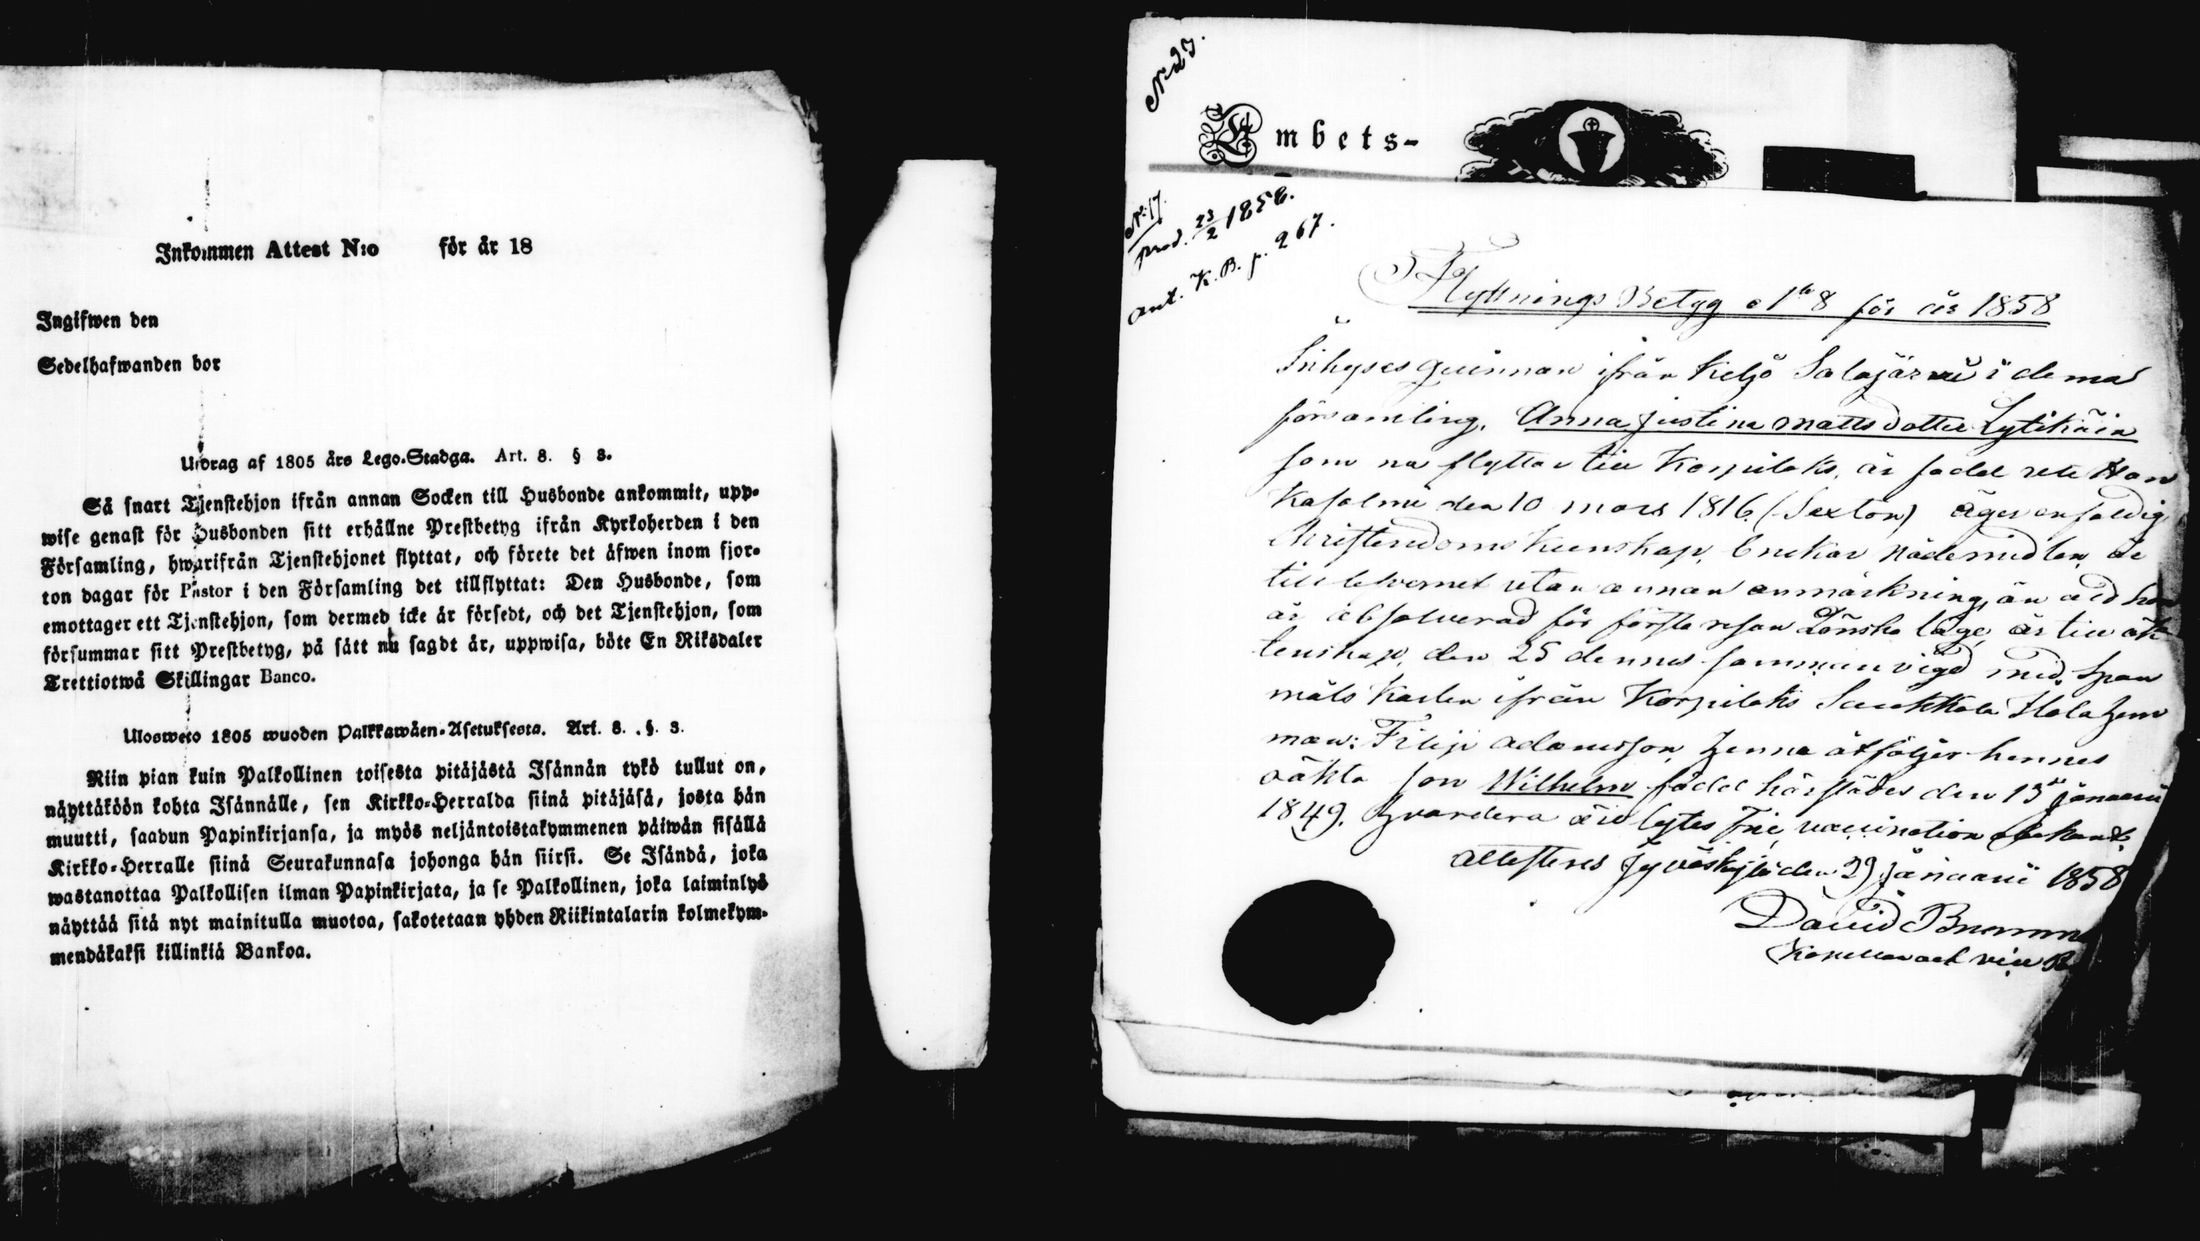 Inkommen Attest N:o för år 18
Ingifwen den
Sedelhafwanden bor
Utdrag af 1805 års Lego-Stadga. Art. 8. § 3.
Så snart Tjenstehjon ifrån annan Socken till Husbonde ankommit, upp-
wise genast för Husbonden sitt erhållne Prestbetyg ifrån Kyrkoherden i den
Församling, hwarifrån Tjenstehjonet flyttat, och förete det äfwen inom fjor-
ton dagar för Pastor i den Församling det tillflyttat: Den Husbonde, som
emottager ett Tjenstehjon, som dermed icke är försedt, och det Tjenstehjon, som
försummar sitt Prestbetyg, på sätt nu sagdt är, uppwisa, böte En Riksdaler
Trettiotwå Skillingar Banco.
Ulosweto 1805 wuoden Palkkawäen-Asetuksesta. Art. 8. §. 3.
Niin pian kuin Palkollinen toisesta pitäjästä Isännän tykö tullut on,
näyttäköön kohta Isännälle, sen Kirkko-Herralda siinä pitäjäsä, josta hän
muutti, saadun Papinkirjansa, ja myös neljäntoistakymmenen päiwän sisällä
Kirkko-Herralle siinä Seurakunnasa johonga hän siirsi. Se Isändä, joka
wastanottaa Palkollisen ilman Papinkirjata, ja se Palkollinen, joka laiminlyö
näyttää sitä nyt mainitulla muotoa, sakotetaan yhden Riikintalarin kolmekym-
mendäkaksi killinkiä Bankoa.
N:o 23.
Embets-
N:o 17.
prod. 23/2 1858.
ant. K. B. p. 267.
Flyttnings Betyg N:o 8 för år 1858
Inhyses quinnan ifrån Keljo Salajärvi i denna
församling, Anna Justina Mattsdotter Lytikäin
som nu flyttar till Korpilaks, är född uti Han
kasalmi den 10 Mars 1816. (Sexton) äger enfaldig
Christendoms kunskap, brukar nådemedlen, är
till lefvernet utan annan anmärkning, än att hon
är absolverad för första resan Lönska läge, är till äk
tenskap, den 25 dennes sammanvigd med Span
måls Karlen ifrån Korpilaks Saukkola Holazem
man: Filip Adamsson, henne åtföljer hennes
oäkta son Wilhelm född härstädes den 13 Januarii
1849. Hvardera äro lytes frie, vaccination
attesteres Jyväskylä den 29 Januarii 1858
David